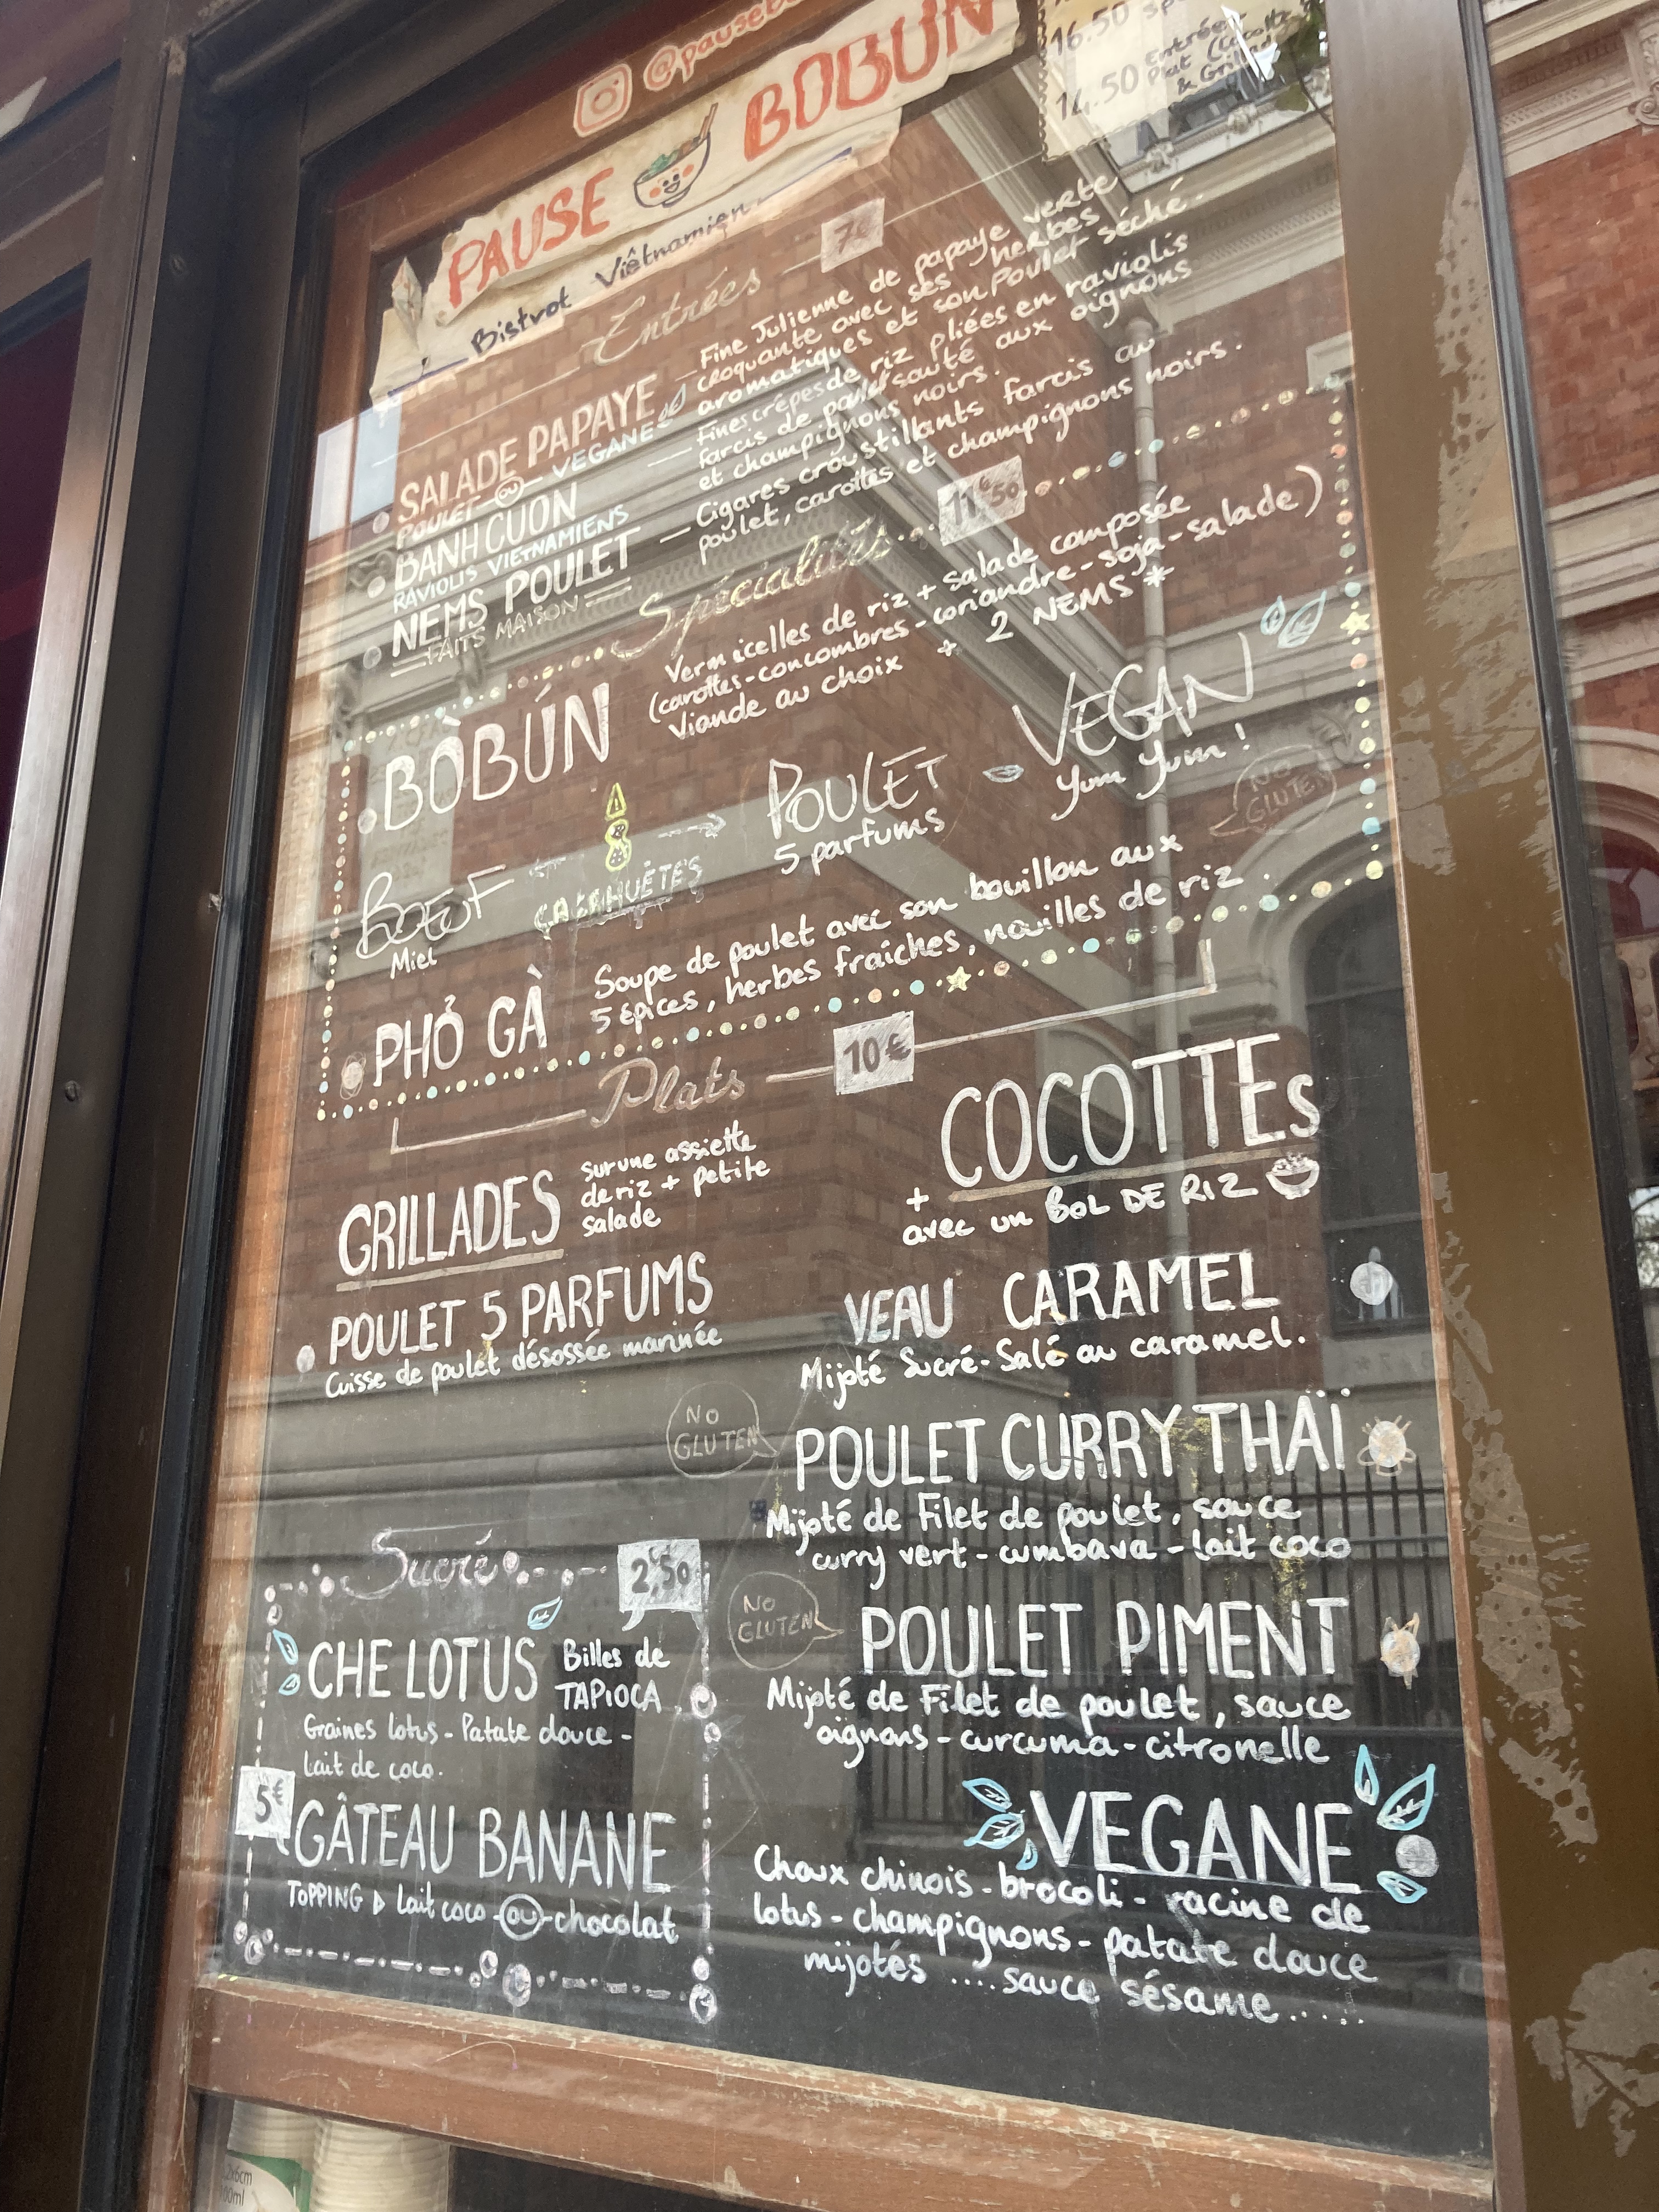 PAUSE BOBUN
Bistrot Viêtnamien
16.50
14.50 Entrée
Plat (Cocotte
& Grill
Entrées 7€
SALADE PAPAYE
POULET OU VEGANE
Fine Julienne de papaye verte
croquante avec ses herbes
aromatiques et son Poulet séché.
BANH CUON
RAVIOLIS VIETNAMIENS
Fines crêpes de riz pliées en raviolis
farcis de poulet sauté aux oignons
et champignons noirs.
NEMS POULET
FAITS MAISON
Cigares croustillants farcis au
poulet, carottes et champignons noirs.
Spécialités 11€50
BÒBÚN
Vermicelles de riz + salade composée
(carottes-concombres-coriandre-soja-salade)
Viande au choix + 2 NEMS *
BOEUF
Miel
CACAHUÈTES
POULET
5 parfums
VEGAN
Yum Yum !
NO
GLUTEN
PHỞ GÀ
Soupe de poulet avec son bouillon aux
5 épices, herbes fraîches, nouilles de riz.
Plats 10€
GRILLADES
sur une assiette
de riz + petite
salade
POULET 5 PARFUMS
Cuisse de poulet désossée marinée
COCOTTEs
+
avec un BOL DE RIZ
VEAU CARAMEL
Mijoté Sucré-Salé au caramel.
NO
GLUTEN
POULET CURRY THAÏ
Mijoté de Filet de poulet, sauce
curry vert - cumbava - lait coco
NO
GLUTEN
POULET PIMENT
Mijoté de Filet de poulet, sauce
oignons - curcuma - citronelle
VEGANE
Choux chinois - brocoli - racine de
lotus - champignons - patate douce
mijotés .... sauce sésame.....
Sucré 2€,50
CHE LOTUS
Billes de
TAPIOCA.
Graines lotus - Patate douce -
Lait de coco.
5€
GÂTEAU BANANE
TOPPING ▷ lait coco - OU - chocolat